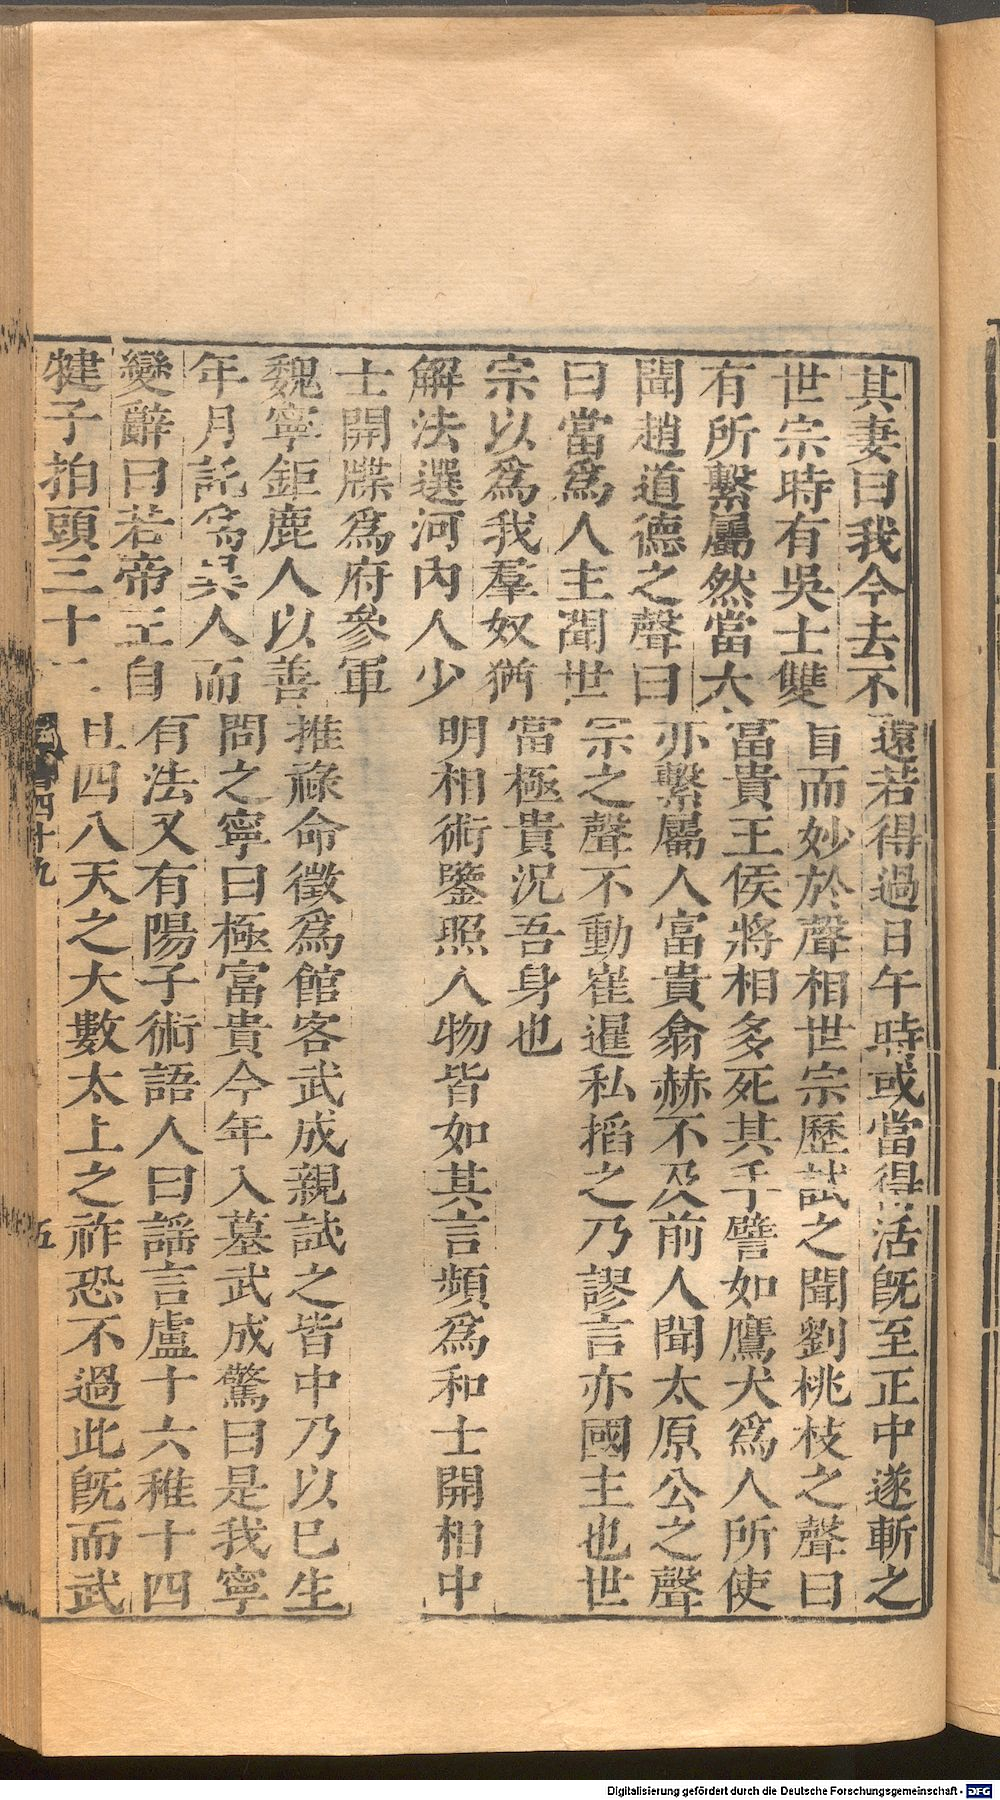 其妻曰我今去不還若得過日午時或當得活既至正中遂斬之
世宗時有吳士雙盲而妙於聲相世宗歷試之聞劉桃枝之聲曰
有所繫屬然當大富貴王侯將相多死其手譬如鷹犬爲人所使
聞趙道德之聲曰亦繫屬人富貴翕赫不及前人聞太原公之聲
曰當爲人主聞世宗之聲不動崔暹私搯之乃謬言亦國主也世
宗以爲我羣奴猶當極貴況吾身也
解法選河內人少明相術鑒照人物皆如其言頻爲和士開相中
士開牒爲府參軍
魏寧鉅鹿人以善推祿命徵爲館客武成親試之皆中乃以己生
年月託爲異人而問之寧曰極富貴今年入墓武成驚曰是我寧
變辭曰若帝王自有法又有陽子術語人曰謠言盧十六稚十四
犍子拍頭三十二且四八天之大數太上之祚恐不過此既而武
四十九
五
Digitalisierung gefördert durch die Deutsche Forschungsgemeinschaft - DFG